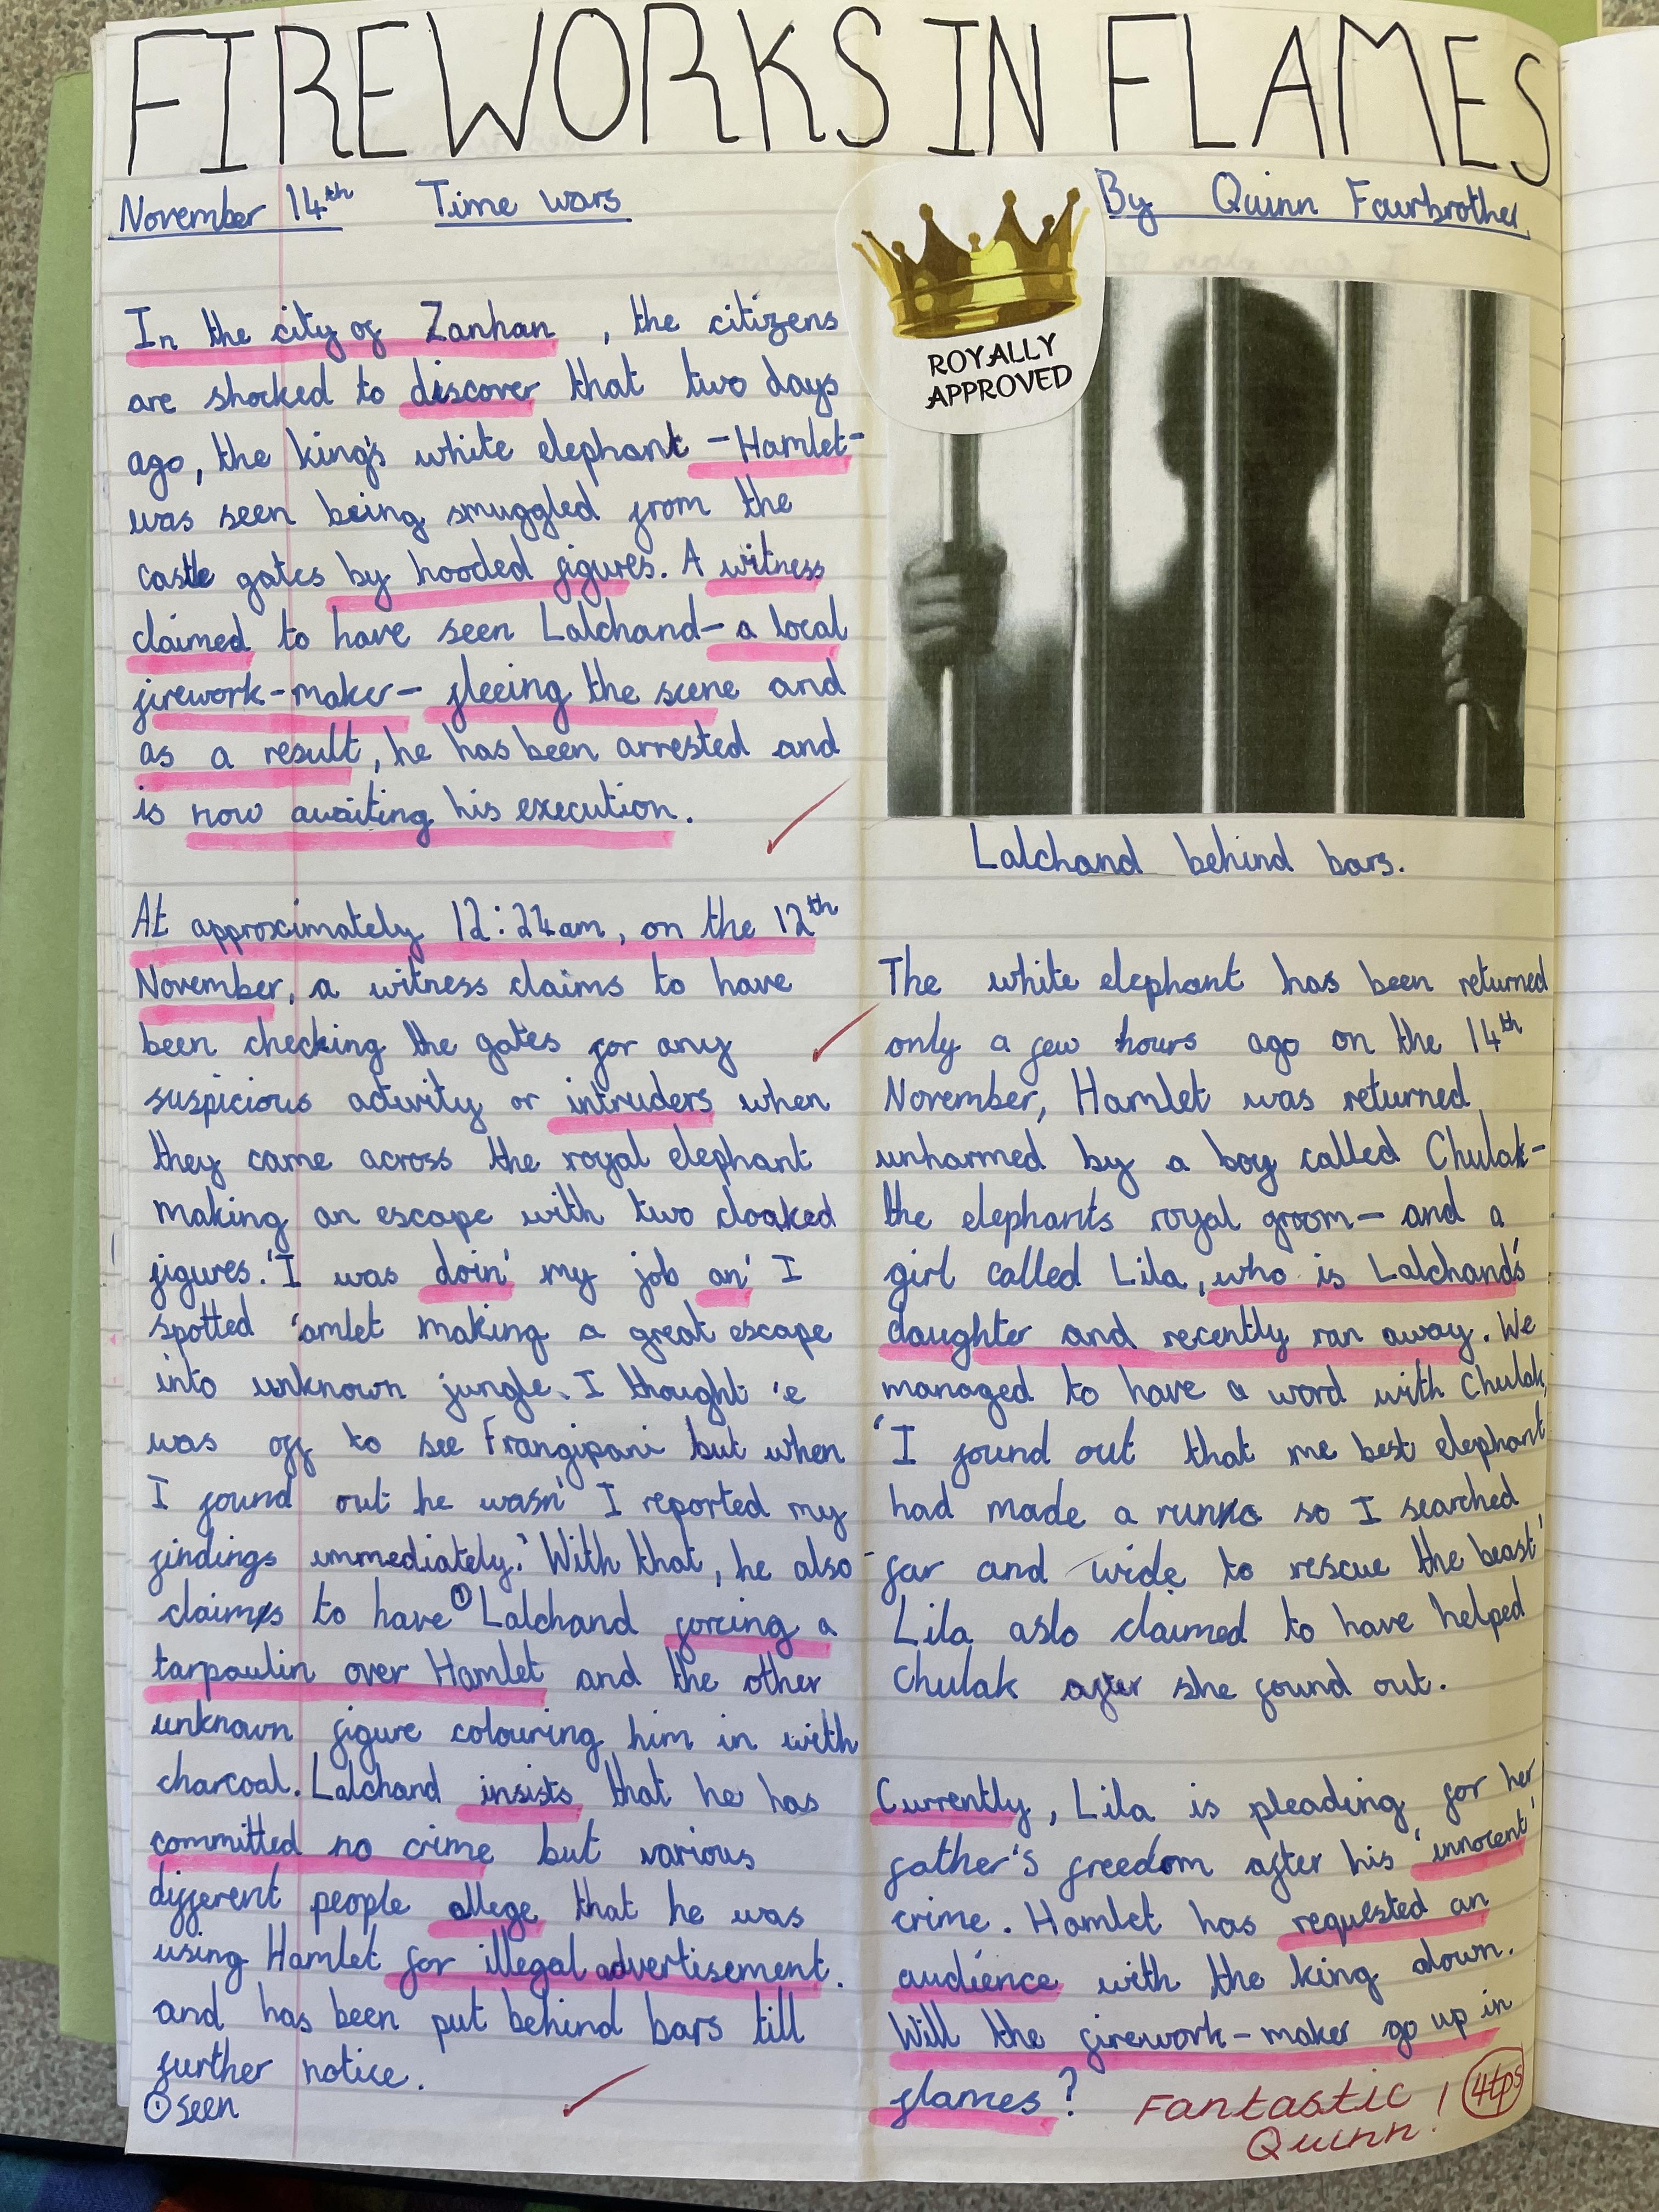 FIREWORKS IN FLAMES
November 14th Time wars By Quinn Fairbrother
In the city of Zanhan, the citizens
are shocked to discover that two days
ago, the king's white elephant -Hamlet-
was seen being smuggled from the
castle gates by hooded figures. A witness
claimed to have seen Lalchand- a local
firework-maker- fleeing the scene and
as a result, he has been arrested and
is now awaiting his execution.
At approximately 12:24am, on the 12th
November, a witness claims to have
been checking the gates for any
suspicious activity or intruders when
they came across the royal elephant
making an escape with two cloaked
figures. 'I was doin' my job an' I
spotted 'amlet making a great escape
into unknown jungle. I thought 'e
was off to see Frangipani but when
I found out he wasn' I reported my
findings immediately.' With that, he also
claims to have ① Lalchand forcing a
tarpaulin over Hamlet and the other
unknown figure colouring him in with
charcoal. Lalchand insists that he has
committed no crime but various
different people allege that he was
using Hamlet for illegal advertisement.
and has been put behind bars till
further notice.
① seen
ROYALLY
APPROVED
Lalchand behind bars.
The white elephant has been returned
only a few hours ago on the 14th
November, Hamlet was returned
unharmed by a boy called Chulak-
the elephants royal groom- and a
girl called Lila, who is Lalchands'
daughter and recently ran away. We
managed to have a word with Chulak,
'I found out that me best elephant
had made a runna so I searched
far and wide to rescue the beast'
Lila aslo claimed to have helped
Chulak after she found out.
Currently, Lila is pleading for her
father's freedom after his 'innocent'
crime. Hamlet has requested an
audience with the king down.
Will the firework-maker go up in
flames?
Fantastic !
Quinn.
4tps